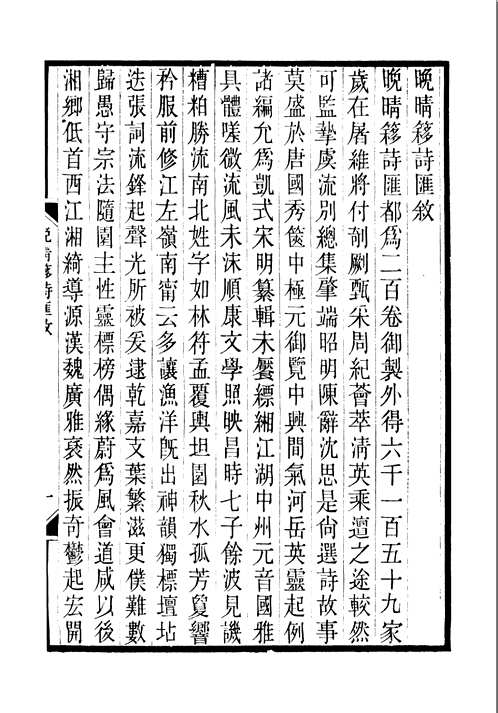 晚晴簃詩匯敘
晚晴簃詩匯都爲二百卷御製外得六千一百五十九家
歲在屠維將付剞劂甄采周紀薈萃淸英乘邅之途較然
可監摯虞流別總集肇端昭明陳辭沈思是尙選詩故事
莫盛於唐國秀篋中極元御覽中興間氣河岳英靈起例
諸編允爲凱式宋明纂輯未饜縹緗江湖中州元音國雅
具體嗟微流風未沬順康文學照映昌時七子餘波見譏
糟粕勝流南北姓字如林符孟覆輿坦園秋水孤芳敻響
矜服前修江左嶺南甯云多讓漁洋旣出神韻獨標壇坫
迭張詞流鋒起聲光所被爰逮乾嘉支葉繁滋更僕難數
歸愚守宗法隨園主性靈標榜偶緣蔚爲風會道咸以後
湘鄉低首西江湘綺導源漢魏廣雅裒然振奇鬱起宏開
晚晴簃詩匯敘
一